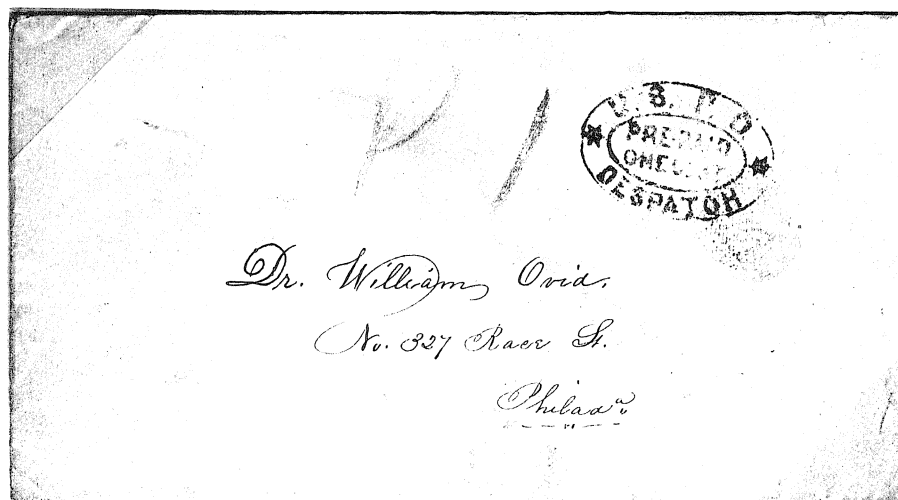 U.S.P.O
PRE-PAID
ONE CENT
DESPATCH
Dr. William Ovid.
No. 327 Race St.
Philada